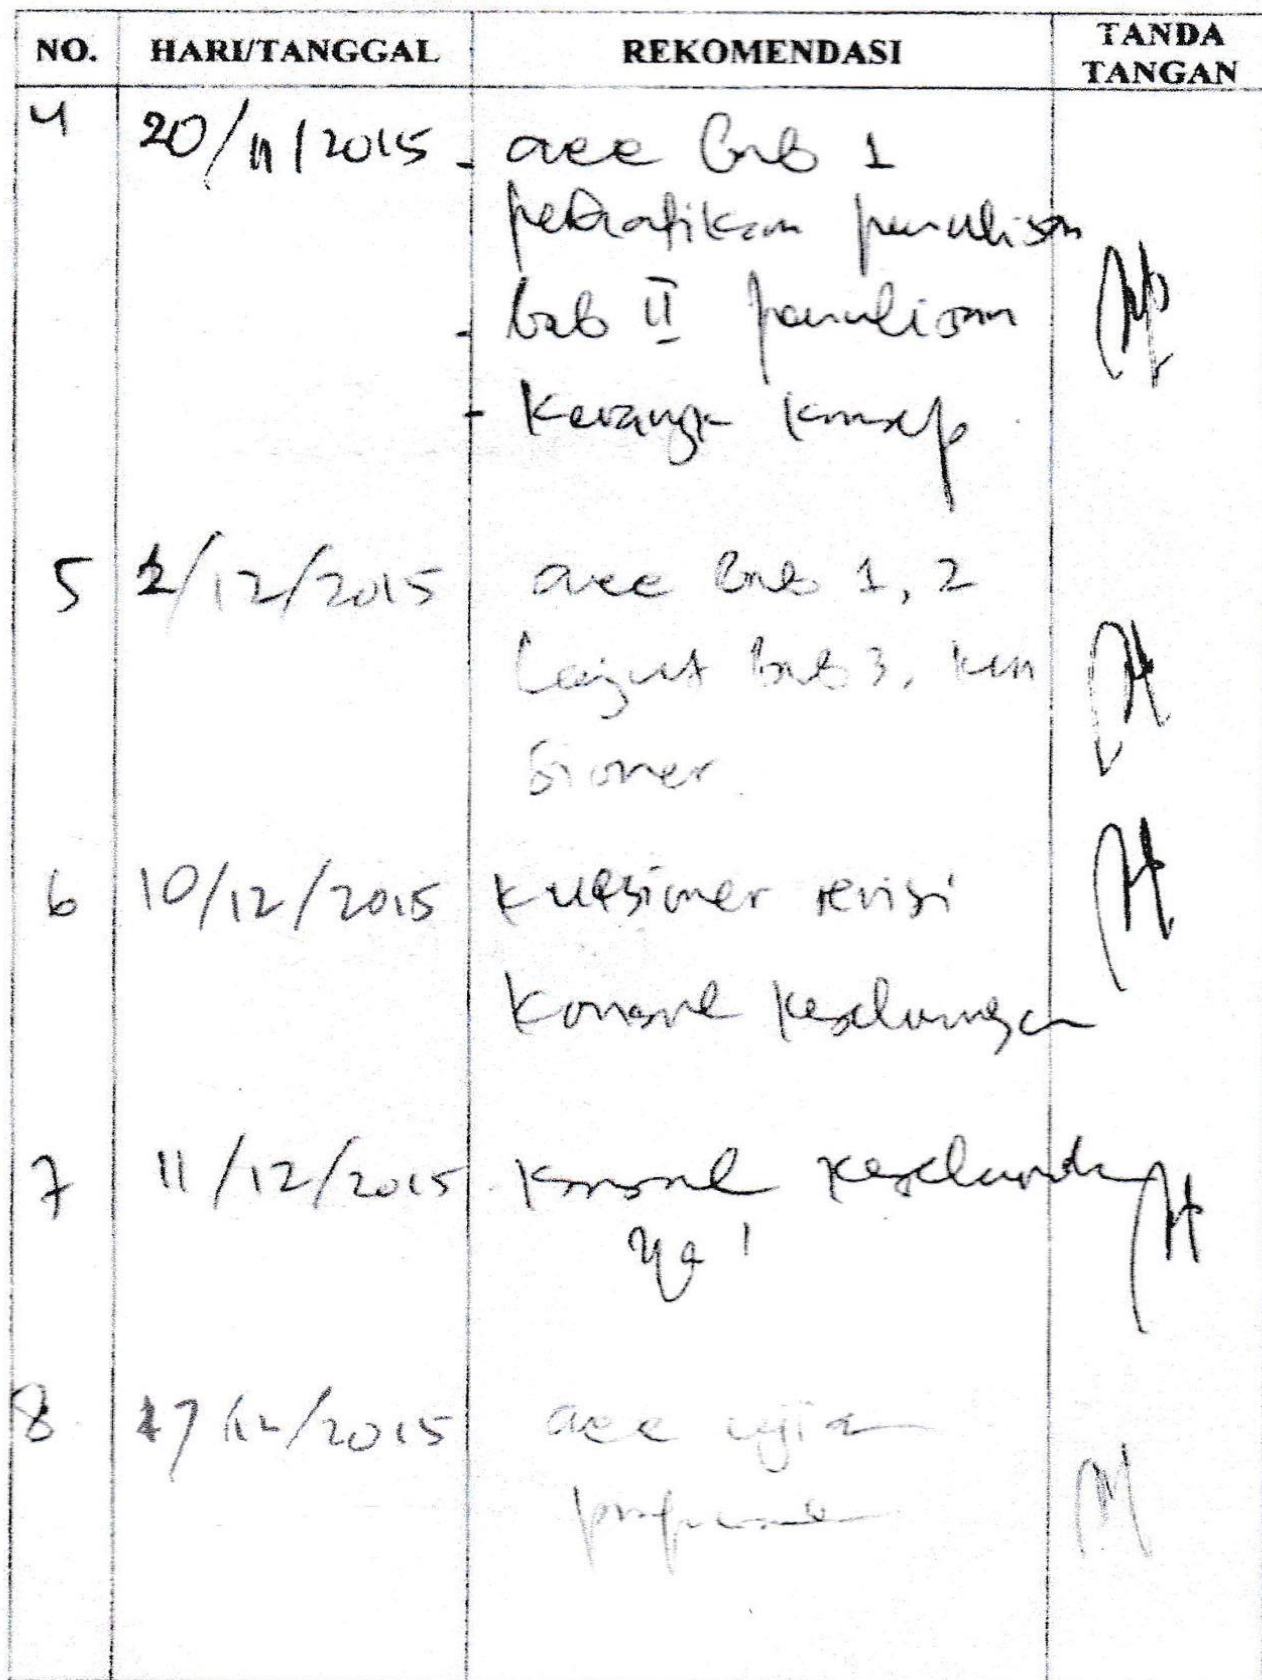 NO. HARI/TANGGAL REKOMENDASI TANDA TANGAN
4 20/11/2015 - acc bab 1
perhatikan penulisan
- bab II penulisan
- Kerangka Konsep
5 2/12/2015 acc bab 1, 2
lanjut bab 3, kue
sioner
6 10/12/2015 kuesioner revisi
Konsul keseluruhan
7 11/12/2015 Konsul keseluruhan
ya!
8 17/12/2015 acc ujian
proposal